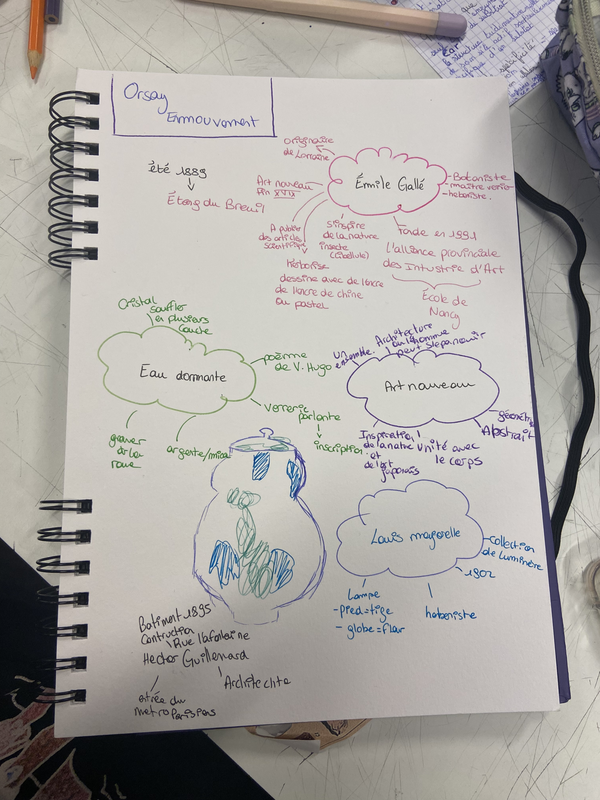 Orsay
Enmouvement
été 1889
Étang du Breuil
Émile Gallé
originaire
de Lorraine
Art nouveau
fin XVIX
A publié
des articles
scientifique
s'inspire
de la nature
insecte
(libellule)
herborise
dessine avec de l'encre
de l'encre de chine
ou pastel
Botaniste
maître verrier
herboriste.
fonde en 1991
L'alliance provinciale
des Industrie d'Art
École de
Nancy
Eau dormante
Cristal
souffler
en plusieurs
couche
poème
de V. Hugo
verrerie
parlante
inscription
graver
à la
roue
argente/mica
Art nouveau
un
ensemble.
Architecture
où l'homme
peut s'épanouir
géométrie
Abstrait
Inspiration
de la nature
et
de l'art
japonais
Unité avec
le corps
Louis majorelle
collection
de luminère
1902
Lampe
-pied=tige
- globe=flar
herboriste
Batiment 1895
Contruction
Rue lafontaine
Hector Guillemard
Architechte
entrée du
metro Parisiens